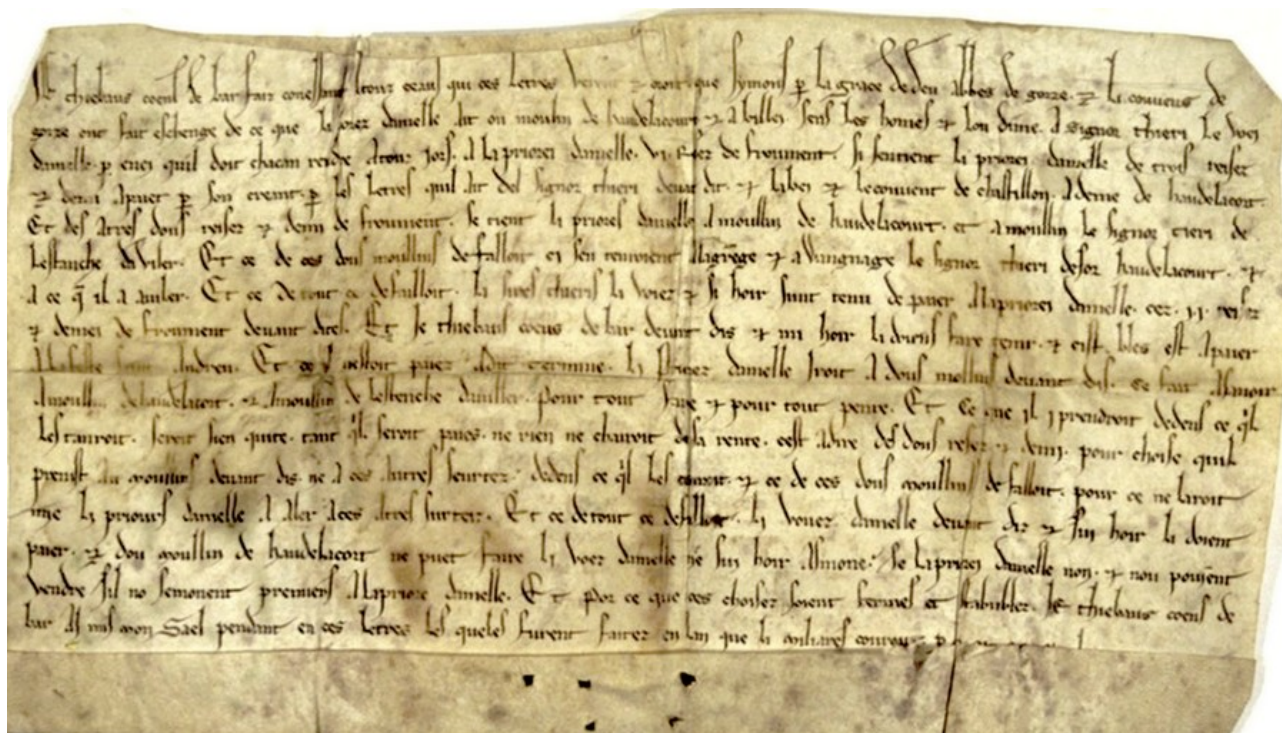 thiebaus coens de bar fait conessant atouz ceaus qui ces letres verront & oront que symons p la grace de deu abbes de gorze. & li couvens de
gorze ont fait eschenge de ce que li priorez damelle at on moulin de haudelacourt & a billei sens les homes & lou dime. a signor thieri le voei
damelle. p enci quil doit chacan rendre atouz jors. a la priorei damelle. vi. rez de froument. si sentient li priorez damelle de trois reisez
& demei apaer p son creant. p les letres quil at del signor thieri devat dit. & labei & lecouvent de chastillon. a deme de haudelacort.
Et des atres dous reisez & demi de froument. se tient li priorez damelle a moullin de haudelacourt. et a moullin le signor tieri de
lestanche daviler. Et ce de ces dous moullins defalloit ci sen revuient alagrege & a waugnage le signor thieri desor haudelacourt. &
a ce q il a aviler. Et ce de tout ce defailloit. li sires thieris li voiez & si hoir sunt tenu de paier alapriorei damelle. cez. ii. reisez
& demei de froument devant dites. Et je thiebaus coens de bar devant dis & mi hoir li doiens faire tenir. & cist bles est apaer
alafeste saint andreu. Et ce ne estoit paiez adit termine. li priorez damelle iroit a dous molins devant dis. ce fait
amoullin dehaudelacort. & amoullin de lestenche daviller. pour tout faire & pour tout penre. Et ce que il i prendroit dedens ce qil
les tanroit. seroit sien quite. tant qil seroit paiez. ne rien ne chauroit desa rente. cest adire des dous resez & demi. pour choise quil
preist au moullins devant dis. ne a ces autres seurtez. dedens ce qil les & ce de ces dous moullins defalloit. pour ce ne lairoit
mie li priours damelle a aler a ces atres surtez. Et ce de tout ce defalloit. li vouez damelle devant dis & sui hoir li doient
paier. & dou moullin de haudelacort ne puet faire li voez damelle ne sui hoir almone. se la priorei damelle non. & nou pouient
vendre sil no semonent premiers alapriore damelle. Et por ce que ces choisez soient fermes et stabublez. je thiebaus coens de
bar ai mis mon sael pendant en ces letres les queles furent faitez en lan que li miliares